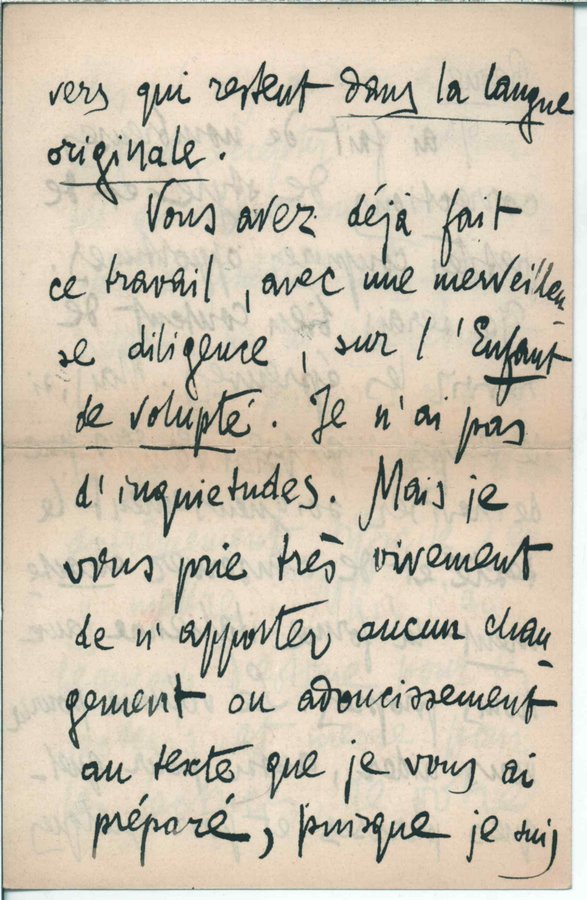 vers qui restent dans la langue
originale.
Vous avez déjà fait
ce travail, avec une merveilleu-
se diligence, sur l'Enfant
de volupté. Je n'ai pas
d'inquietudes. Mais je
vous prie très vivement
de n'apporter aucun chan-
gement ou adoucissement
au texte que je vous ai
préparé, puisque je suis